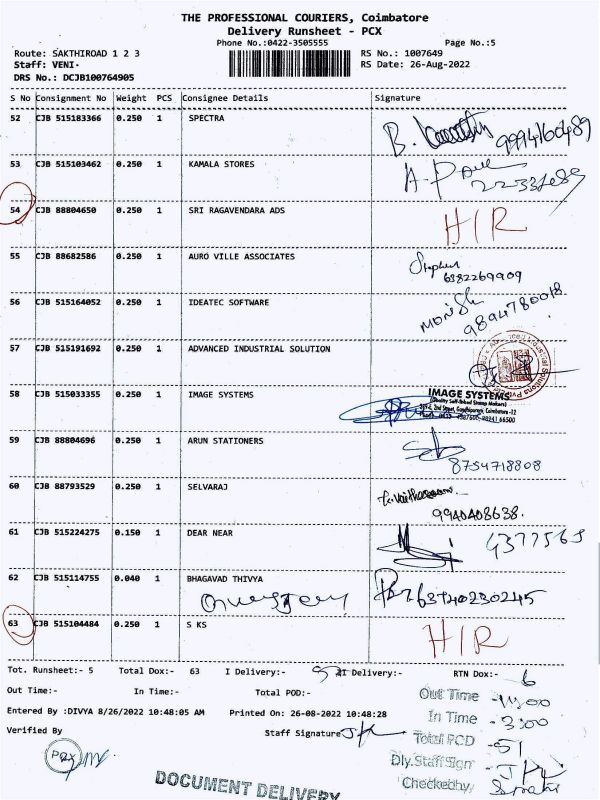 THE PROFESSIONAL COURIERS, Coimbatore
Delivery Runsheet - PCX
Phone No.:0422-3505555
Page No.:5
Route: SAKTHIROAD 1 2 3
RS No.: 1007649
Staff: VENI.
RS Date: 26-Aug-2022
DRS No.: DCJB100764905
S No Consignment No Weight PCS Consignee Details Signature
52 CJB 515183366 0.250 1 SPECTRA
9994160489
53 CJB 515103462 0.250 1 KAMALA STORES
54 CJB 88804650 0.250 1 SRI RAGAVENDARA ADS H/R
55 CJB 88682586 0.250 1 AURO VILLE ASSOCIATES Stephen
6382269909
56 CJB 515164052 0.250 1 IDEATEC SOFTWARE
9894780018
57 CJB 515191692 0.250 1 ADVANCED INDUSTRIAL SOLUTION
58 CJB 515033355 0.250 1 IMAGE SYSTEMS IMAGE SYSTEMS
59 CJB 88804696 0.250 1 ARUN STATIONERS
8754718808
60 CJB 88793529 0.250 1 SELVARAJ
9940408638.
61 CJB 515224275 0.150 1 DEAR NEAR
62 CJB 515114755 0.040 1 BHAGAVAD THIVYA
63740230245
63 CJB 515104484 0.250 1 S KS H/R
Tot. Runsheet:- 5 Total Dox:- 63 I Delivery:- II Delivery:- RTN Dox:- 6
Out Time:- In Time:- Total POD:-
Out Time - 11.00
Entered By :DIVYA 8/26/2022 10:48:05 AM Printed On: 26-08-2022 10:48:28
In Time - 3:00
Verified By Staff Signature
Total POD - 51
PCX
Dly.Staff Sign -
Checked by
DOCUMENT DELIVERY